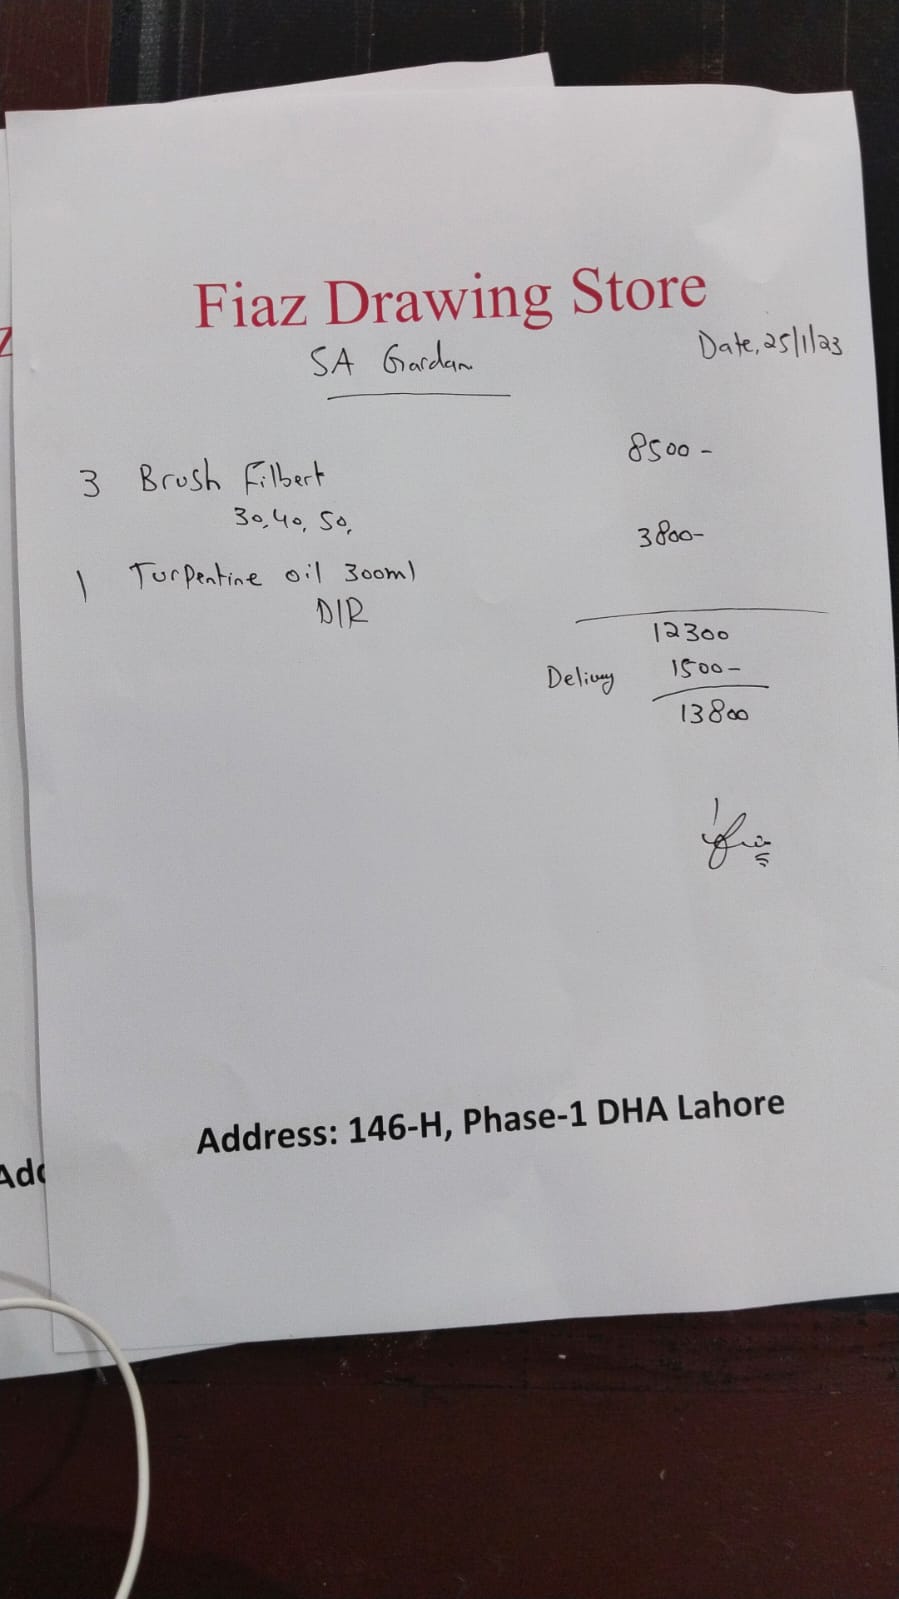 Fiaz Drawing Store
SA Gardan
Date, 25/1/23
3 Brush Filbert 8500 -
30, 40, 50,
1 Turpentine oil 300ml 3800-
DIR
12300
Delivry 1500-
13800
Address: 146-H, Phase-1 DHA Lahore
Z
Add